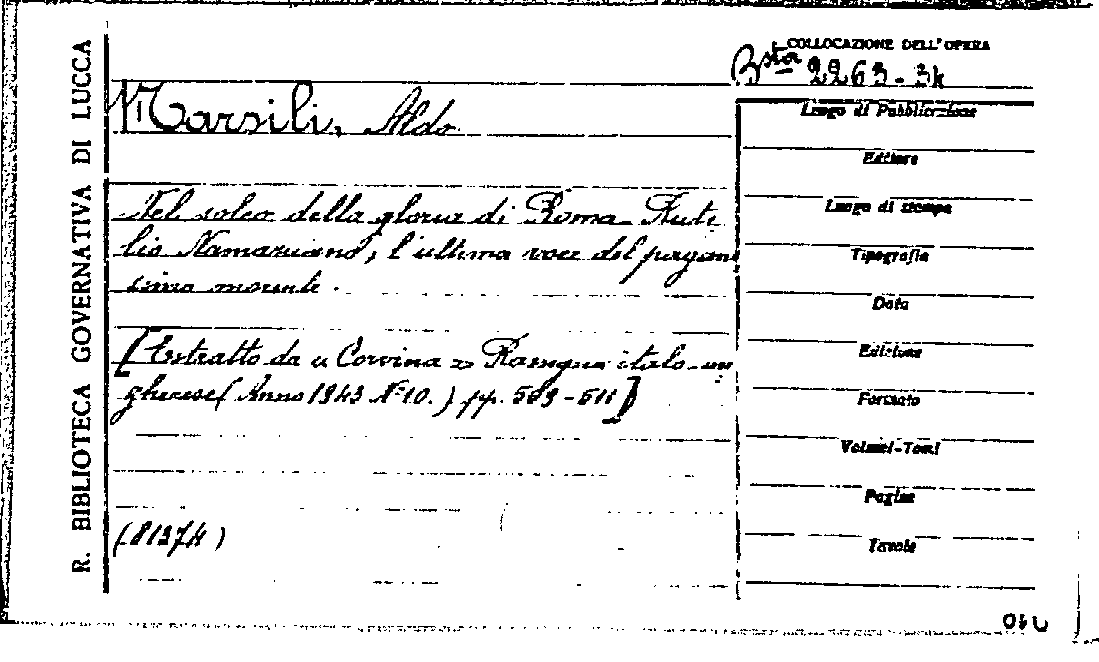 R. BIBLIOTECA GOVERNATIVA DI LUCCA
COLLOCAZIONE DELL'OPERA
Bsta 2263-34
Marsili, Aldo
Nel solco della gloria di Roma - Ruti
lio Namaziano, l'ultima voce del pagane
simo morente.
[Estratto da « Corvina » Rassegna italo-un
gherese (Anno 1943 N. 10.) pp. 509-511]
(81374)
Luogo di Pubblicazione
Editore
Luogo di stampa
Tipografia
Data
Edizione
Formato
Volumi-Tomi
Pagine
Tavole